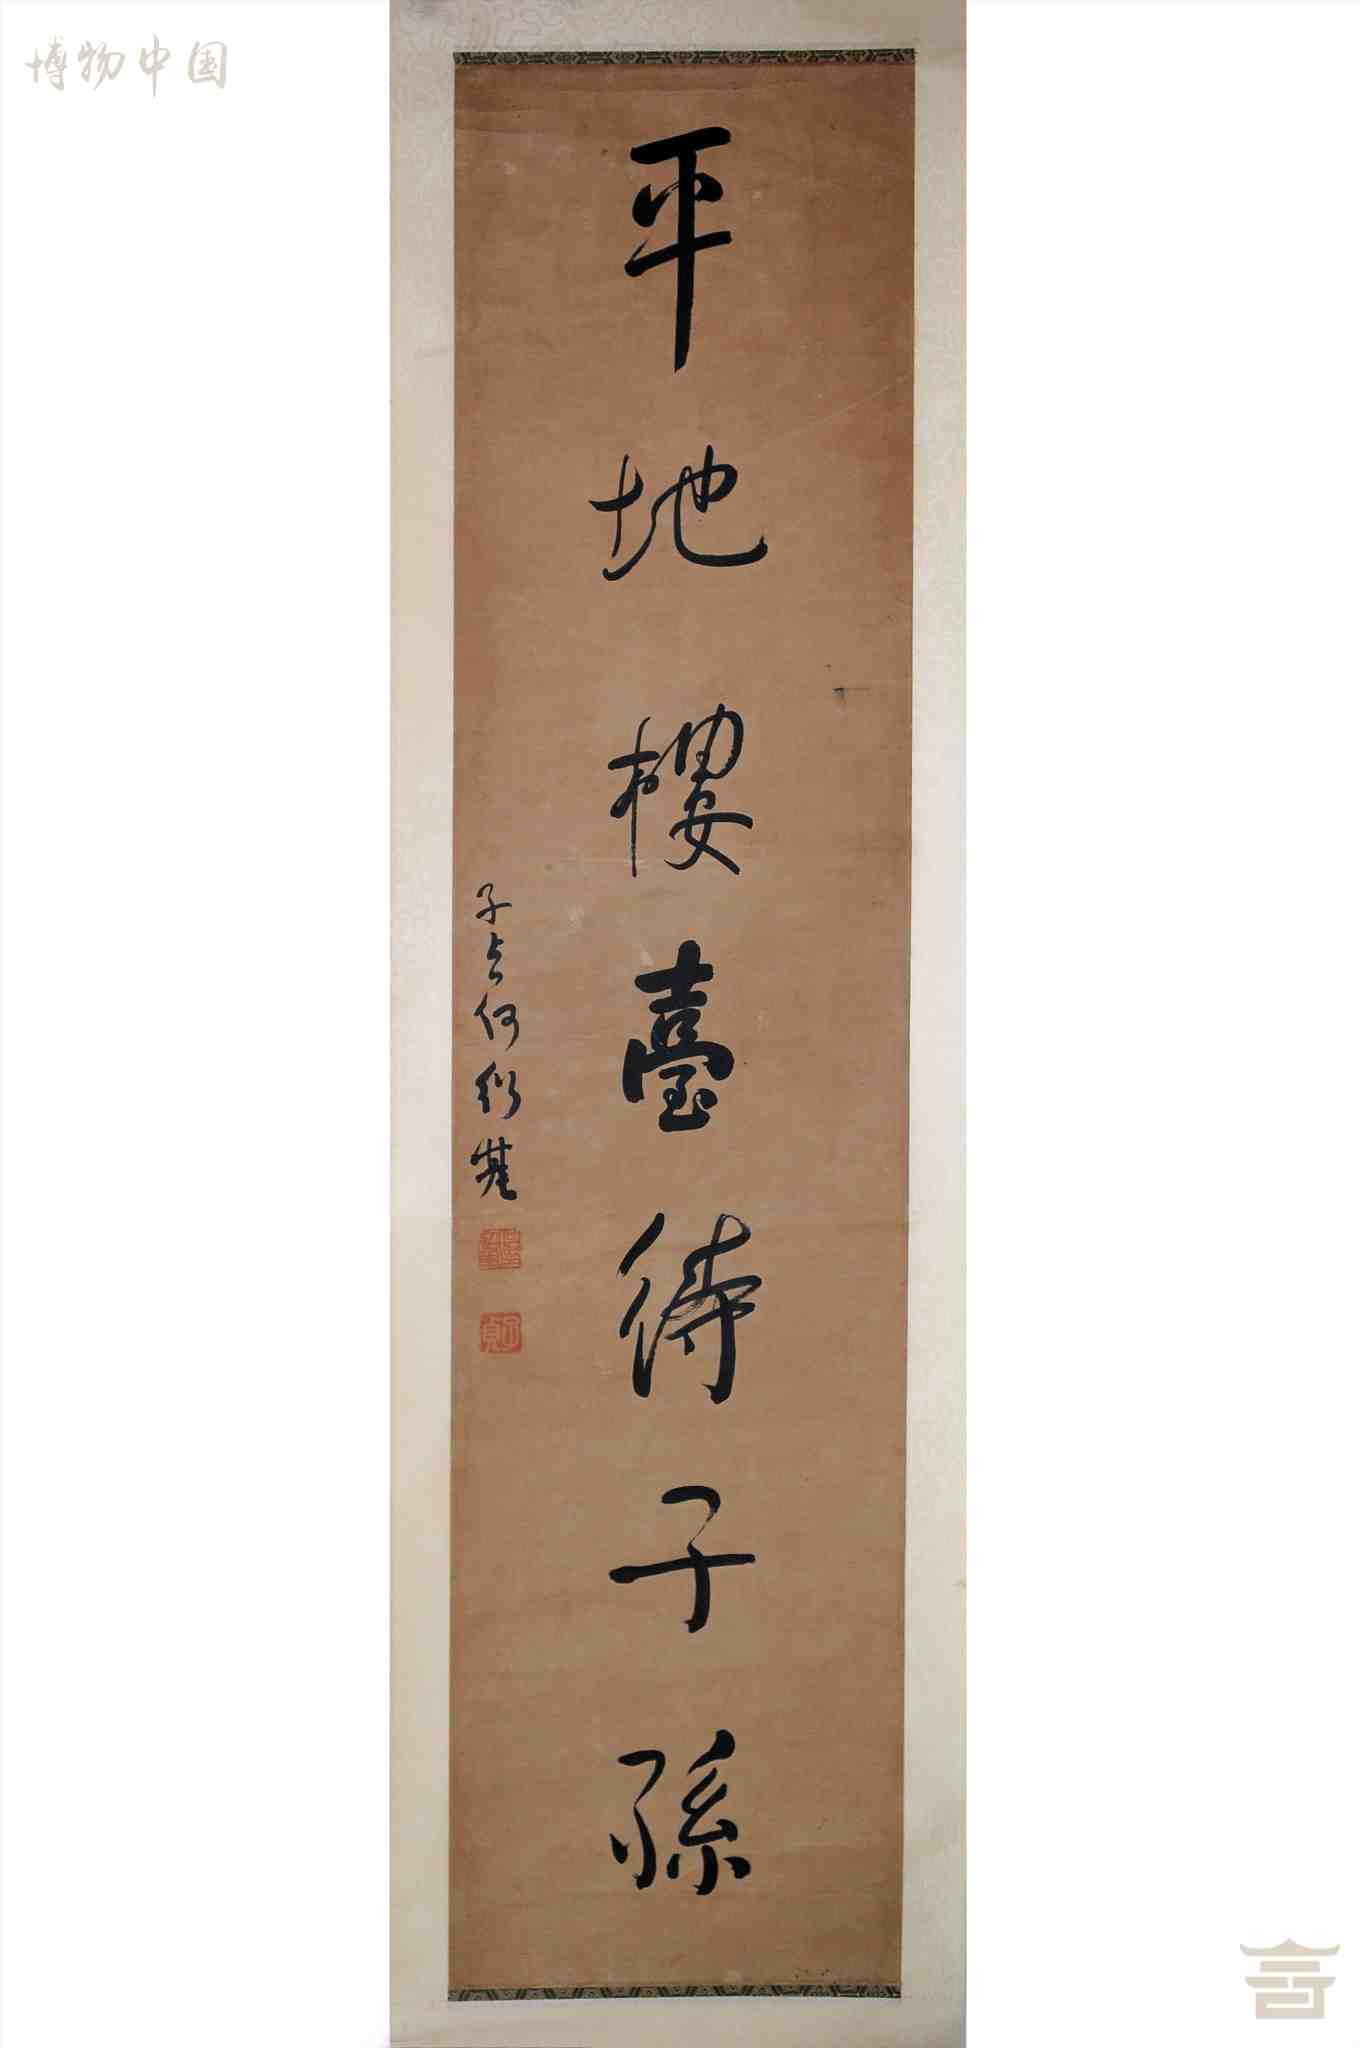 博物中国
平地樓臺待子孫
子貞何紹基
子貞